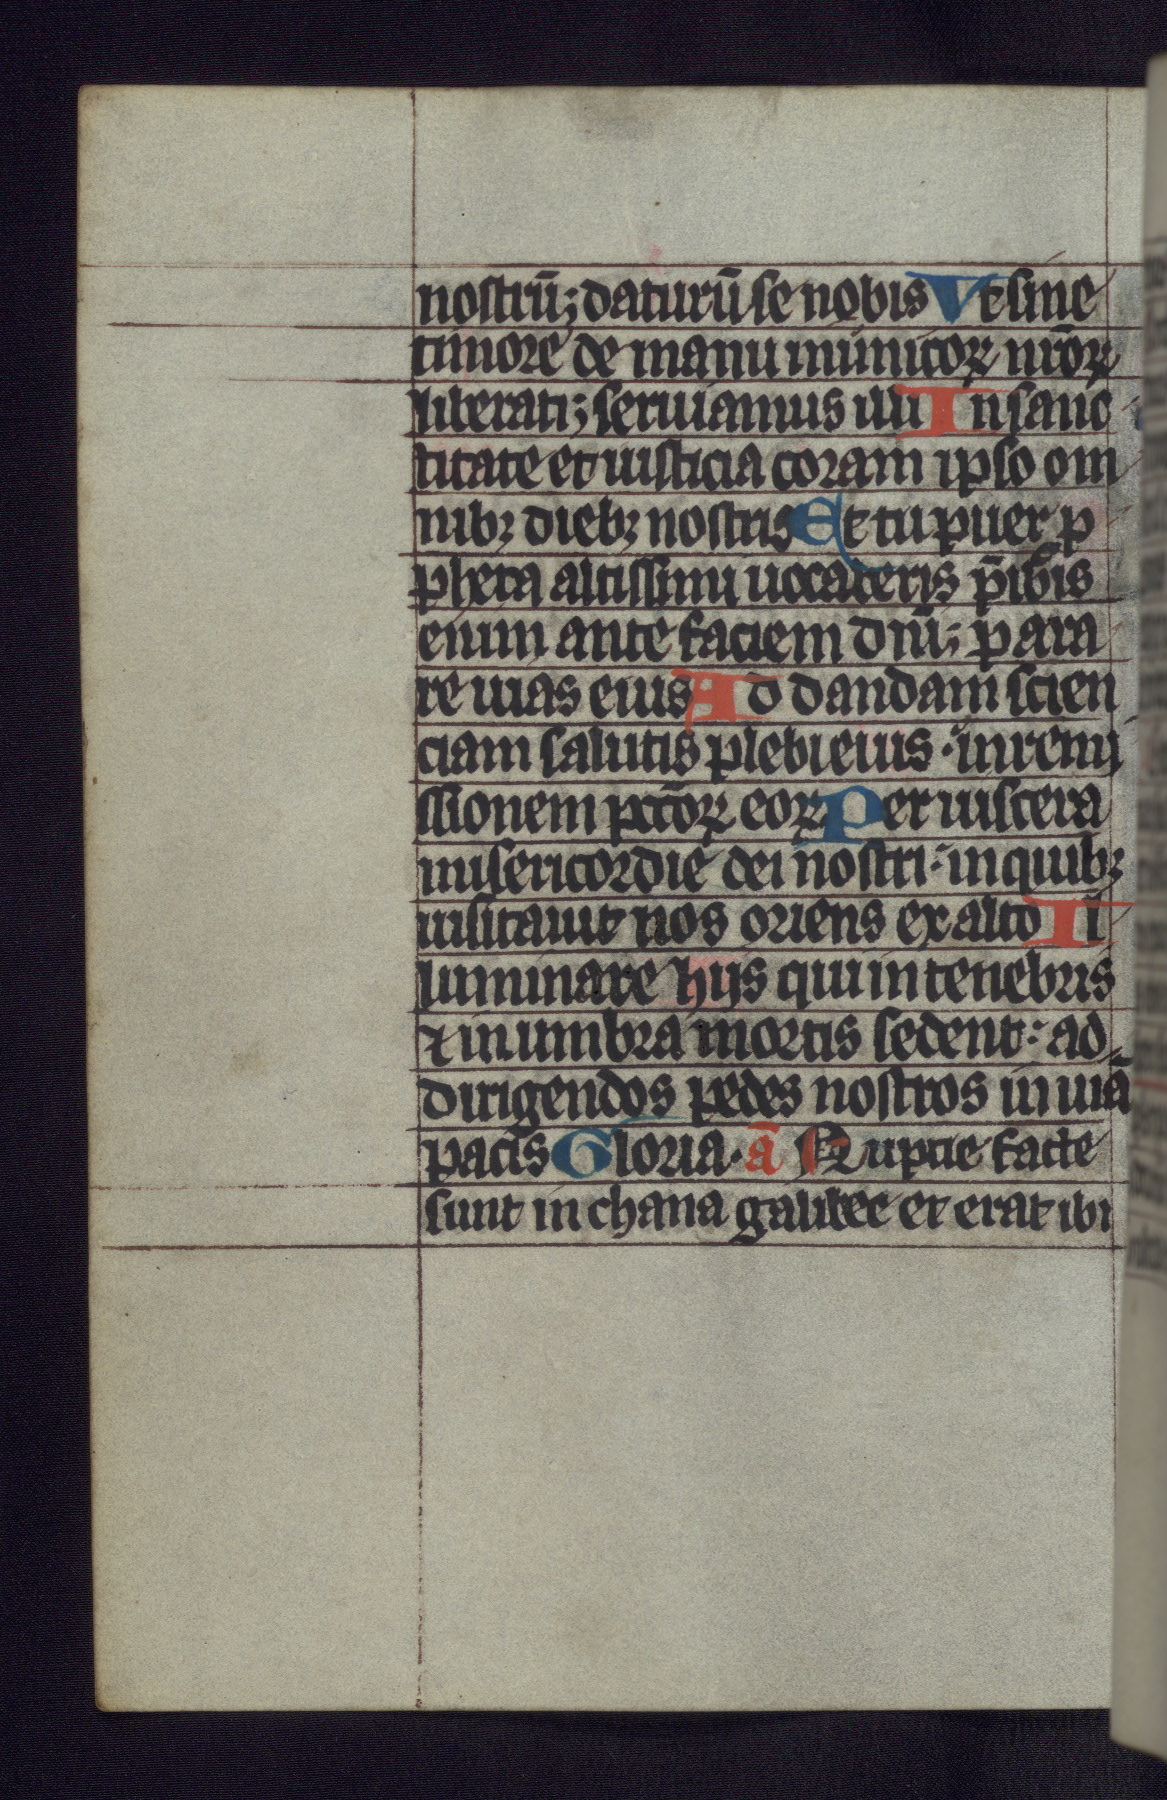 nostrū; daturū se nobis Vt sine
timore de manu inimicoꝝ nr̄oꝝ
liberati; seruiamus illi In sanc
titate et iusticia coram ipso om
nibꝫ diebꝫ nostris Et tu puer ꝓ
pheta altissimi uocaberis p̄ibis
enim ante faciem dn̄i; para
re uias eius Ad dandam scien
ciam salutis plebi eius · in remi
ssionem pctōꝝ eoꝝ Per uiscera
misericordie dei nostri · in quibꝫ
uisitauit nos oriens ex alto Il
luminare hijs qui in tenebris
⁊ in umbra mortis sedent : ad
dirigendos pedes nostros in uiā
pacis Gloria · ā Nupcie facte
sunt in chana galilee et erat ibi